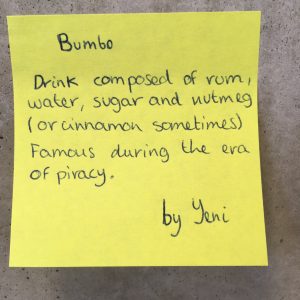 Bumbo
Drink composed of rum,
water, sugar and nutmeg
(or cinnamon sometimes)
Famous during the era
of piracy.
by Yeni